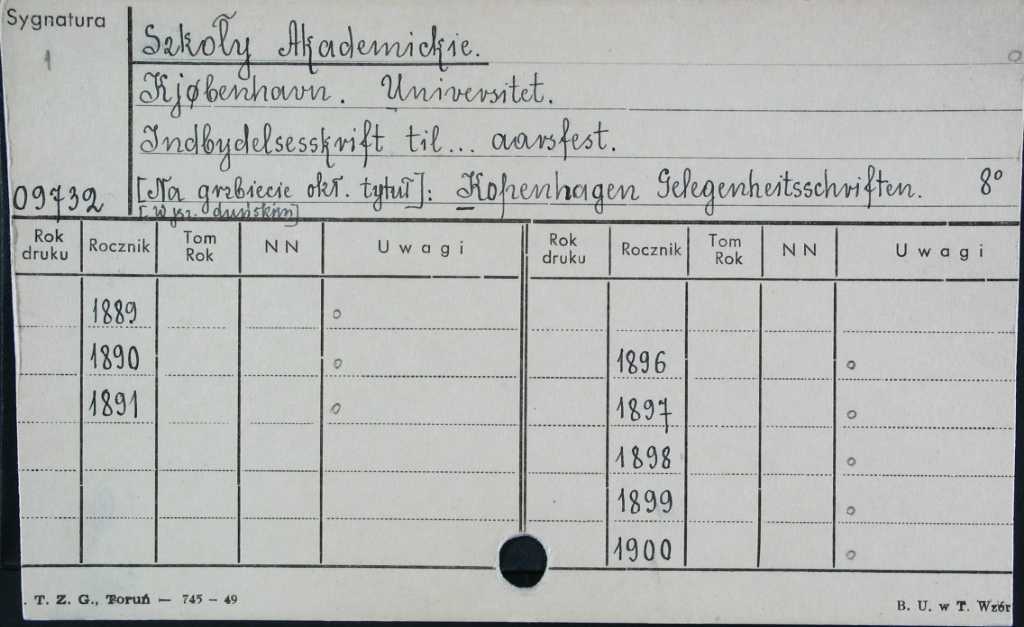 Sygnatura
1
09732
Szkoły Akademickie.
Kjøbenhavn. Universitet.
Indbydelsesskrift til... aarsfest.
[Na grzbiecie okł. tytuł]: Kopenhagen Gelegenheitsschriften. 8°
[W jęz. duńskim]
Rok druku Rocznik Tom Rok NN Uwagi Rok druku Rocznik Tom Rok NN Uwagi
1889
1890 1896
1891 1897
1898
1899
1900
. T. Z. G., Toruń — 745 - 49 B. U. w T. Wzór